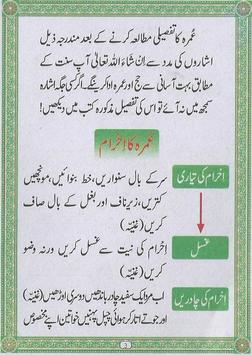 عُمرہ کا تفصیلی مطالعہ کرنے کے بعد مندرجہ ذیل
اشاروں کی مدد سے اِن شاءَ اللہ تعالیٰ آپ سنت کے
مطابق بہت آسانی سے حج اور عمرہ ادا کرینگے۔ اگر کسی جگہ اشارہ
سمجھ میں نہ آئے تو اس کی تفصیل مذکورہ کتب میں دیکھیں!
عمرہ کا اِحْرام
اِحْرام کی تیاری
سر کے بال سنواریں، خط بنوائیں، مونچھیں
کتریں، زیرِ ناف اور بغل کے بال صاف
کریں (غنیۃ)
غسل
اِحْرام کی نیت سے غسل کریں ورنہ وضو
کریں (غنیۃ)
اِحْرام کی چادریں
اب مرد ایک سفید چادر باندھیں دوسری اوڑھیں (غنیۃ)
اور جوتے اتار کر ہوائی چپل پہنیں خواتین اپنے مخصوص
3